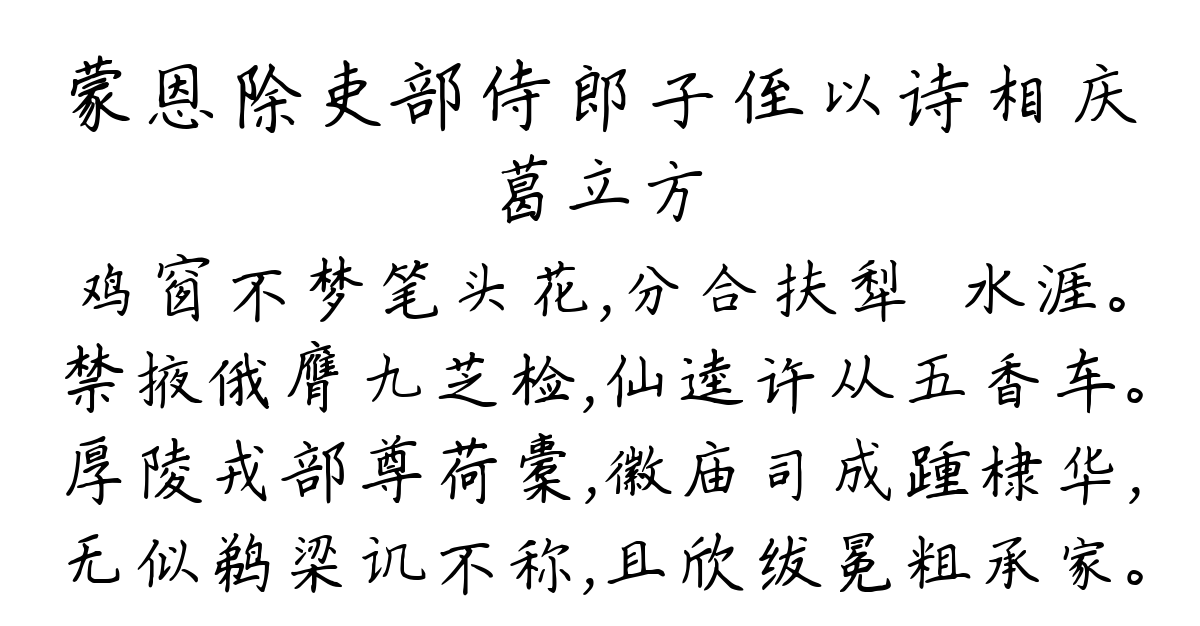 蒙恩除吏部侍郎子侄以诗相庆
葛立方
鸡窗不梦笔头花,分合扶犁 水涯。
禁掖俄膺九芝检,仙逵许从五香车。
厚陵戎部尊荷橐,徽庙司成踵棣华,
无似鹈梁讥不称,且欣绂冕粗承家。